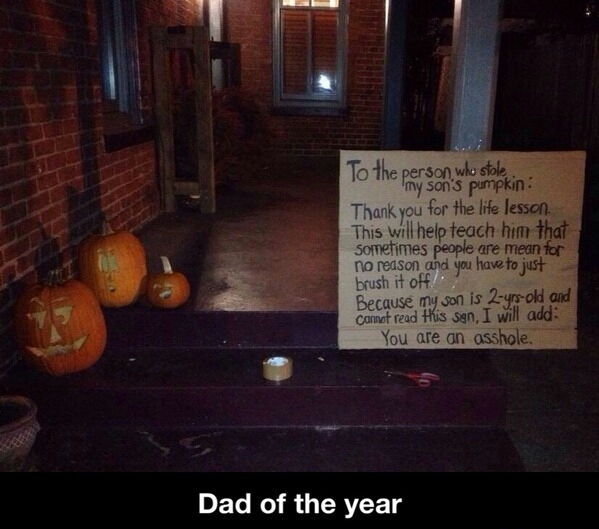 To the person who stole
my son's pumpkin:
Thank you for the life lesson.
This will help teach him that
sometimes people are mean for
no reason and you have to just
brush it off.
Because my son is 2-yrs-old and
cannot read this sign, I will add:
You are an asshole.
Dad of the year